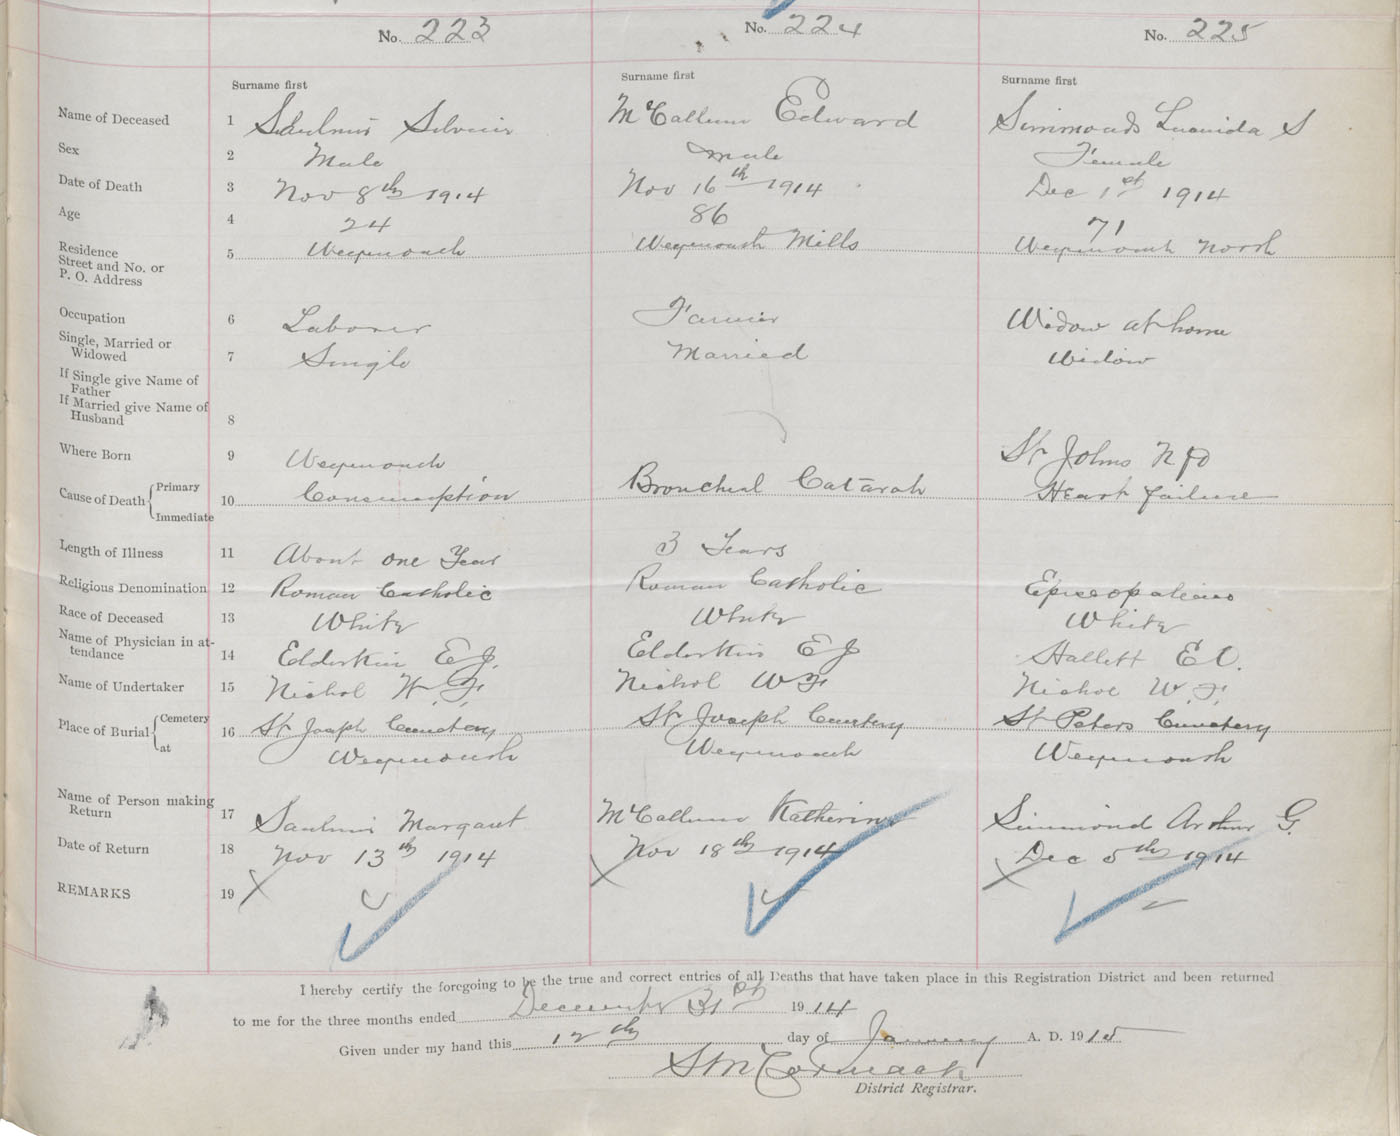 No. 223 No. 224 No. 225
Surname first Surname first Surname first
Name of Deceased 1 McCallum Edward Simmonds S
Sex 2 Male Male Female
Date of Death 3 Nov 8th 1914 Nov 16th 1914 Dec 1st 1914
Age 4 24 86 71
Residence
Street and No. or
P. O. Address 5 Weymouth Weymouth Mills Weymouth North
Occupation 6 Laborer Farmer Widow at home
Single, Married or
Widowed 7 Single Married Widow
If Single give Name of
Father
If Married give Name of
Husband 8
Where Born 9 Weymouth St Johns Nfd
Cause of Death Primary
Immediate 10 Consumption Bronchial Catarah Heart failure
Length of Illness 11 About one Year 3 Years
Religious Denomination 12 Roman Catholic Roman Catholic Episcopalian
Race of Deceased 13 White White White
Name of Physician in at-
tendance 14 Elderkin E J. Elderkin E J Hallett E O.
Name of Undertaker 15 Nichol W. F. Nichol W F Nichol W. F.
Place of Burial Cemetery
at 16 St Joseph Cemetery St Joseph Cemetery St Peters Cemetery
Weymouth Weymouth Weymouth
Name of Person making
Return 17 Margaret McCallum Katherine Simmond Arthur G.
Date of Return 18 Nov 13th 1914 Nov 18th 1914 Dec 5th 1914
REMARKS 19
I hereby certify the foregoing to be the true and correct entries of all Deaths that have taken place in this Registration District and been returned
to me for the three months ended December 31st 1914
Given under my hand this 12th day of January A. D. 1915
McCormack
District Registrar.